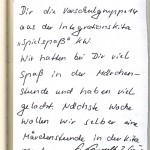 Dir die Vorschulgruppe der
aus der Integrationskita
"Spielspaß" KW.
Wir hatten bei Dir viel
Spaß in der Märchen-
stunde und haben viel
gelacht. Nächste Woche
wollen wir selber eine
Märchenstunde in der Kita